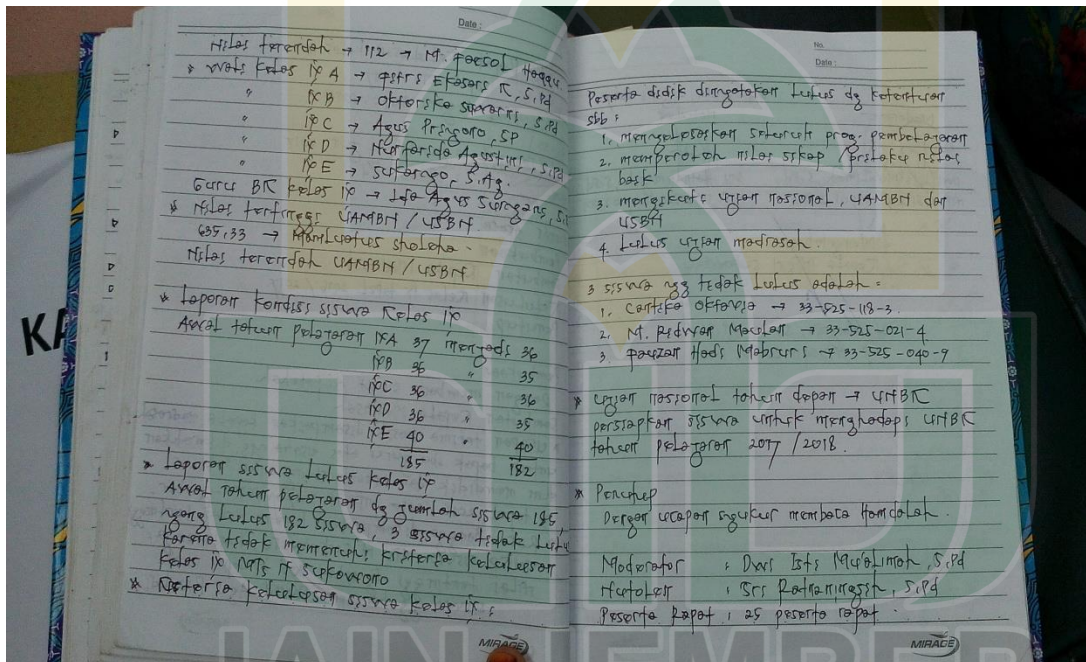 Date :
Nilai terendah → 112 → M. Faesol Haqqi
* Wali kelas IX A → Fitri Ekasari R, S.Pd
" IX B → Oktoriska S, S.Pd
" IX C → Agus Priyono, SP
" IX D → Nurfarida Agustini, S.Pd
" IX E → Sukaryo, S.Ag.
Guru BK kelas IX → Ida Agus S
* Nilai tertinggi UAMBN / USBN.
635,33 → Mamluatus sholeha.
Nilai terendah UAMBN / USBN
* Laporan kondisi siswa Kelas IX
Awal tahun pelajaran IXA 37 menjadi 36
IXB 36 " 35
IXC 36 " 36
IXD 36 " 35
IXE 40 " 40
185 182
* Laporan siswa Lulus kelas IX
Awal tahun pelajaran dg jumlah siswa 185,
yang Lulus 182 siswa, 3 siswa tidak Lulus
karena tidak memenuhi kriteria kelulusan
kelas IX MTs N Sukowono
* Kriteria kelulusan siswa kelas IX :
MIRAGE
No.
Date :
Peserta didik dinyatakan Lulus dg ketentuan
sbb :
1. menyelesaikan seluruh prog. pembelajaran
2. memperoleh nilai sikap / prilaku nilai
baik
3. mengikuti ujian nasional, UAMBN dan
USBN
4. Lulus ujian madrasah.
3 siswa yg tidak Lulus adalah :
1. Cantika Oktavia → 33-525-118-3.
2. M. Ridwan Maulan → 33-525-021-4
3. Fauzan Hadi Mabruri → 33-525-040-9
* ujian nasional tahun depan → UNBK
persiapkan siswa untuk menghadapi UNBK
tahun pelajaran 2017 / 2018.
* Penutup
Dengan ucapan syukur membaca hamdalah.
Moderator : Dwi Isti Mu'alimah, S.Pd
Notulen : Sri Ratnaningsih, S.Pd
Peserta Rapat : 25 peserta rapat.
MIRAGE
KA
IAIN JEMBER